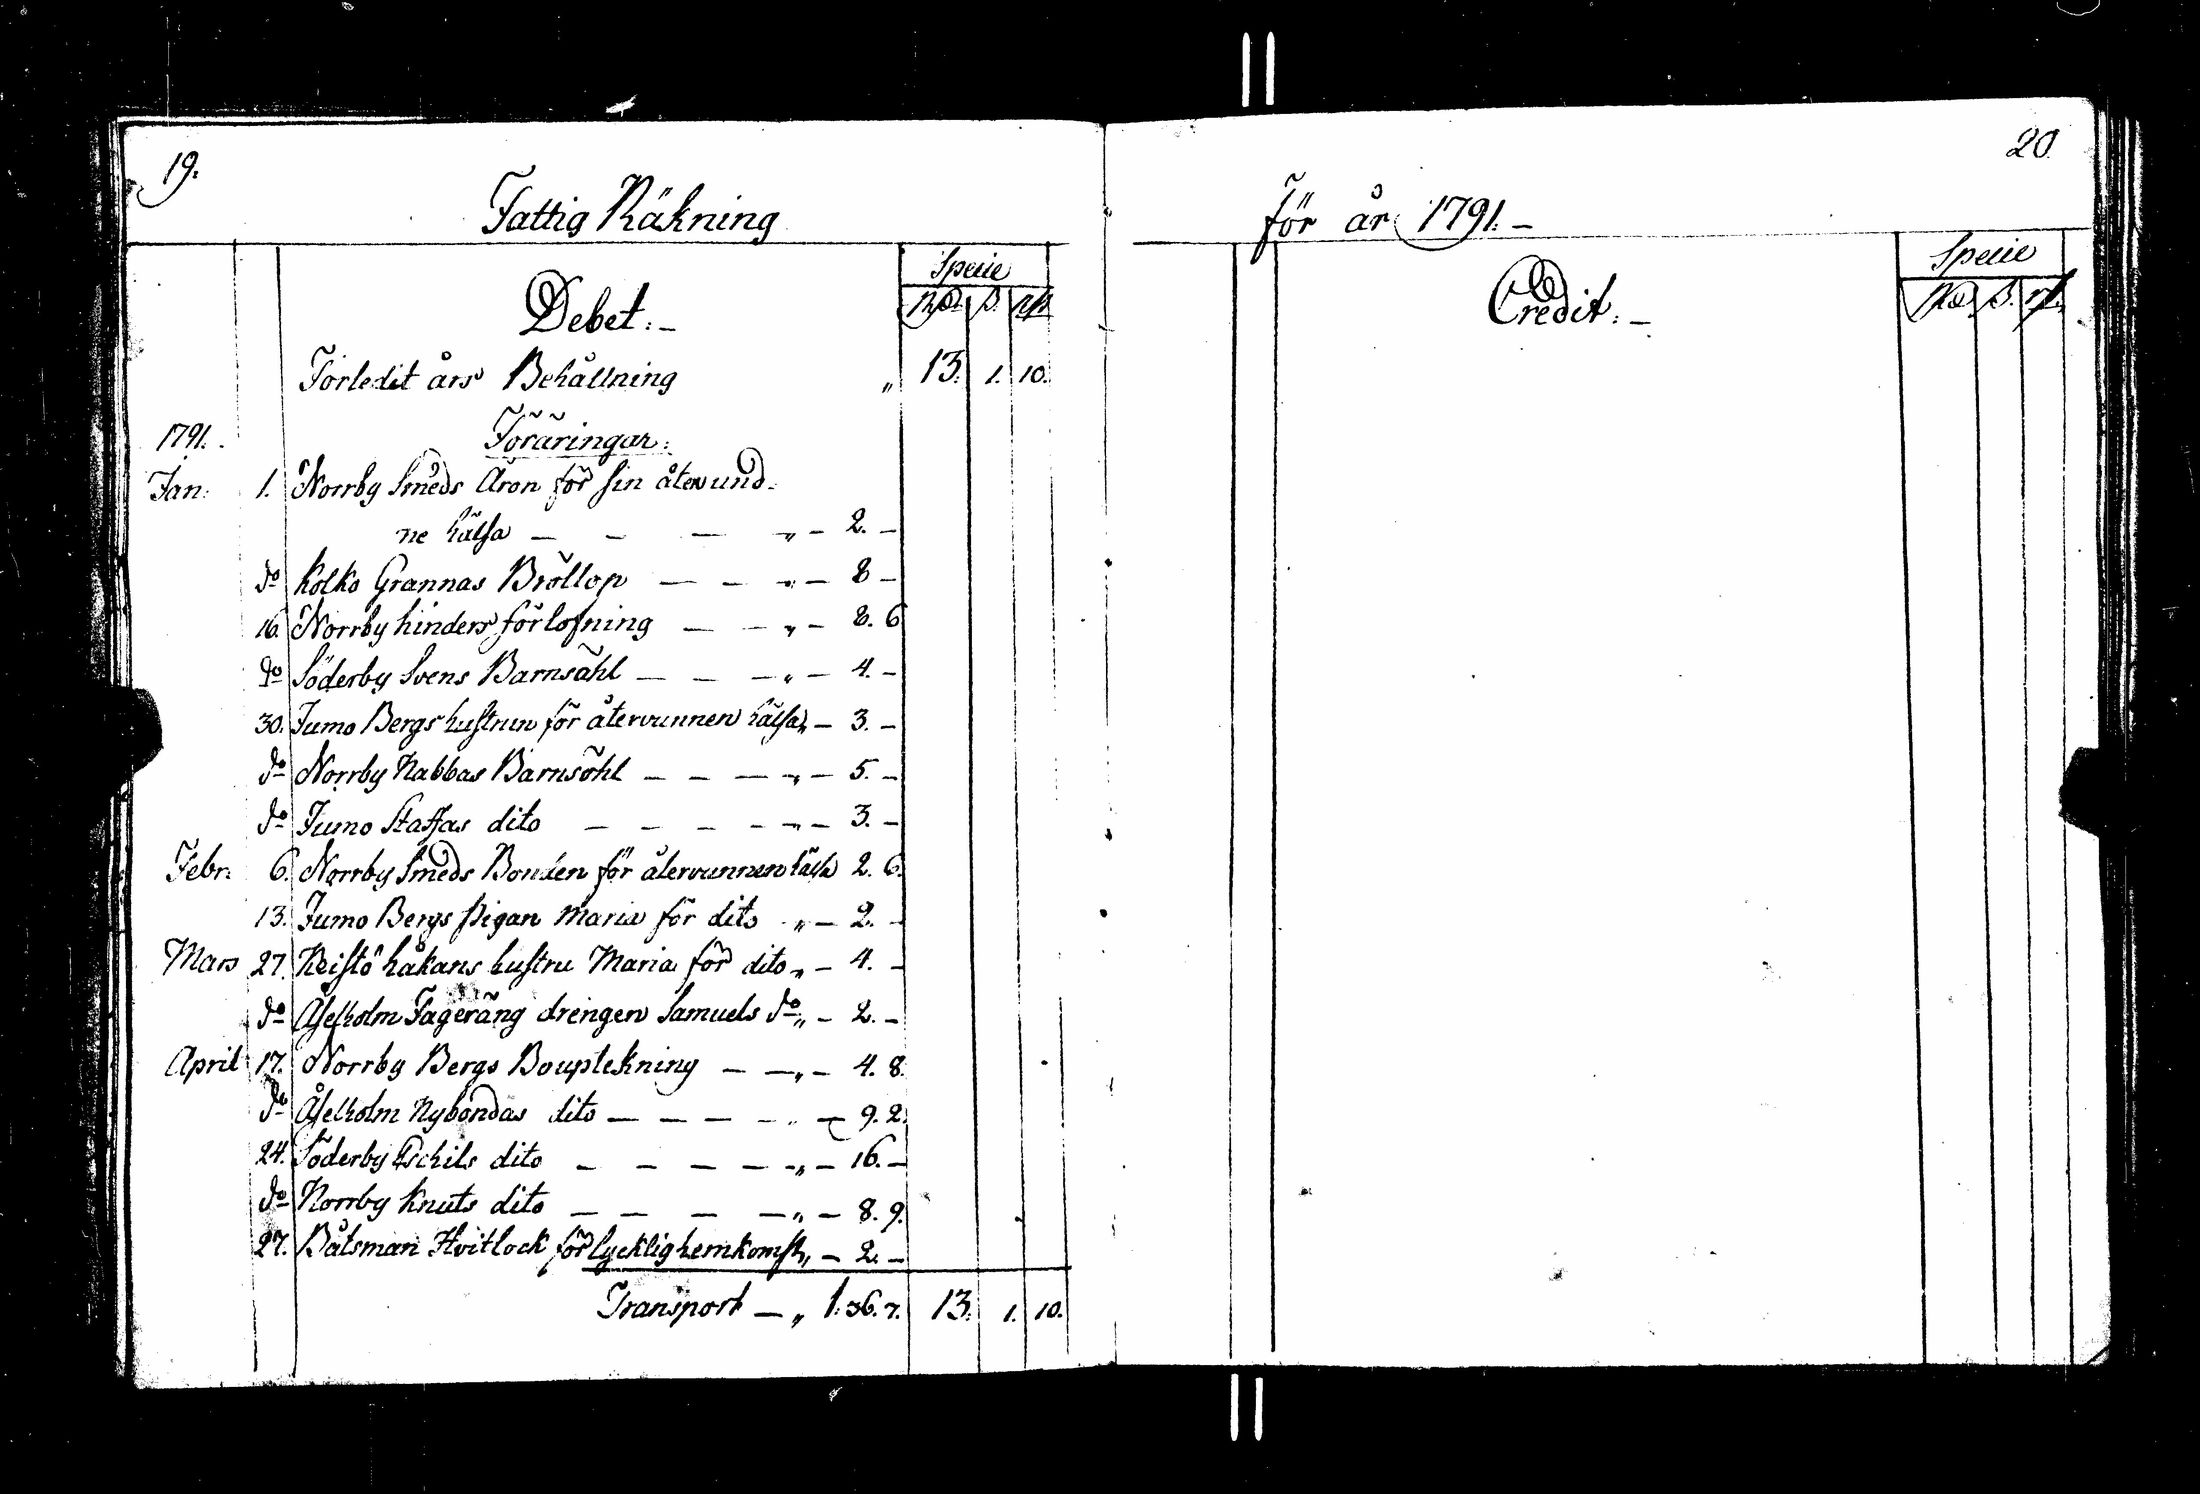 19.
Fattig Räkning
Specie
Debet:
Rdr ß. rst
Förledit års Behållning „ 13. 1. 10.
1791.
Föräringar:
Jan: 1. Norrby Smeds Aron för sin återvund-
ne hälsa — — — „ — 2. —
do Kolko Grannas Bröllop — — „ — 8 —
16. Norrby hinders förlofning — — „ — 8. 6
do Söderby Svens Barnsöhl — — — „ — 4. —
30. Jumo Bergs hustrun för återvunnen hälsa „ — 3. —
do Norrby Nabbas Barnsöhl — — — „ — 5. —
do Jumo Staffas dito — — — — „ — 3. —
Febr: 6. Norrby Smeds Bonden för återvunnen hälsa 2. 6.
13. Jumo Bergs pigan Maria för dito „ — 2. —
Mars 27. Keistö håkans hustru Maria för dito „ — 4. —
do Åselholm Fageräng drengen Samuels do „ — 2. —
April 17. Norrby Bergs Bouptekning — — „ — 4. 8.
do Åselholm Nybondas dito — — — — „ — 9. 2.
24. Söderby Eschils dito — — — — „ — 16. —
do Norrby Knuts dito — — — — „ — 8. 9.
27. Båtsman Hvitlock för lycklig hemkomst „ — 2. —
Transport — „ 1. 36. 7. 13. 1. 10.
20
för år 1791. —
Specie
Credit: —
Rdr ß. rst